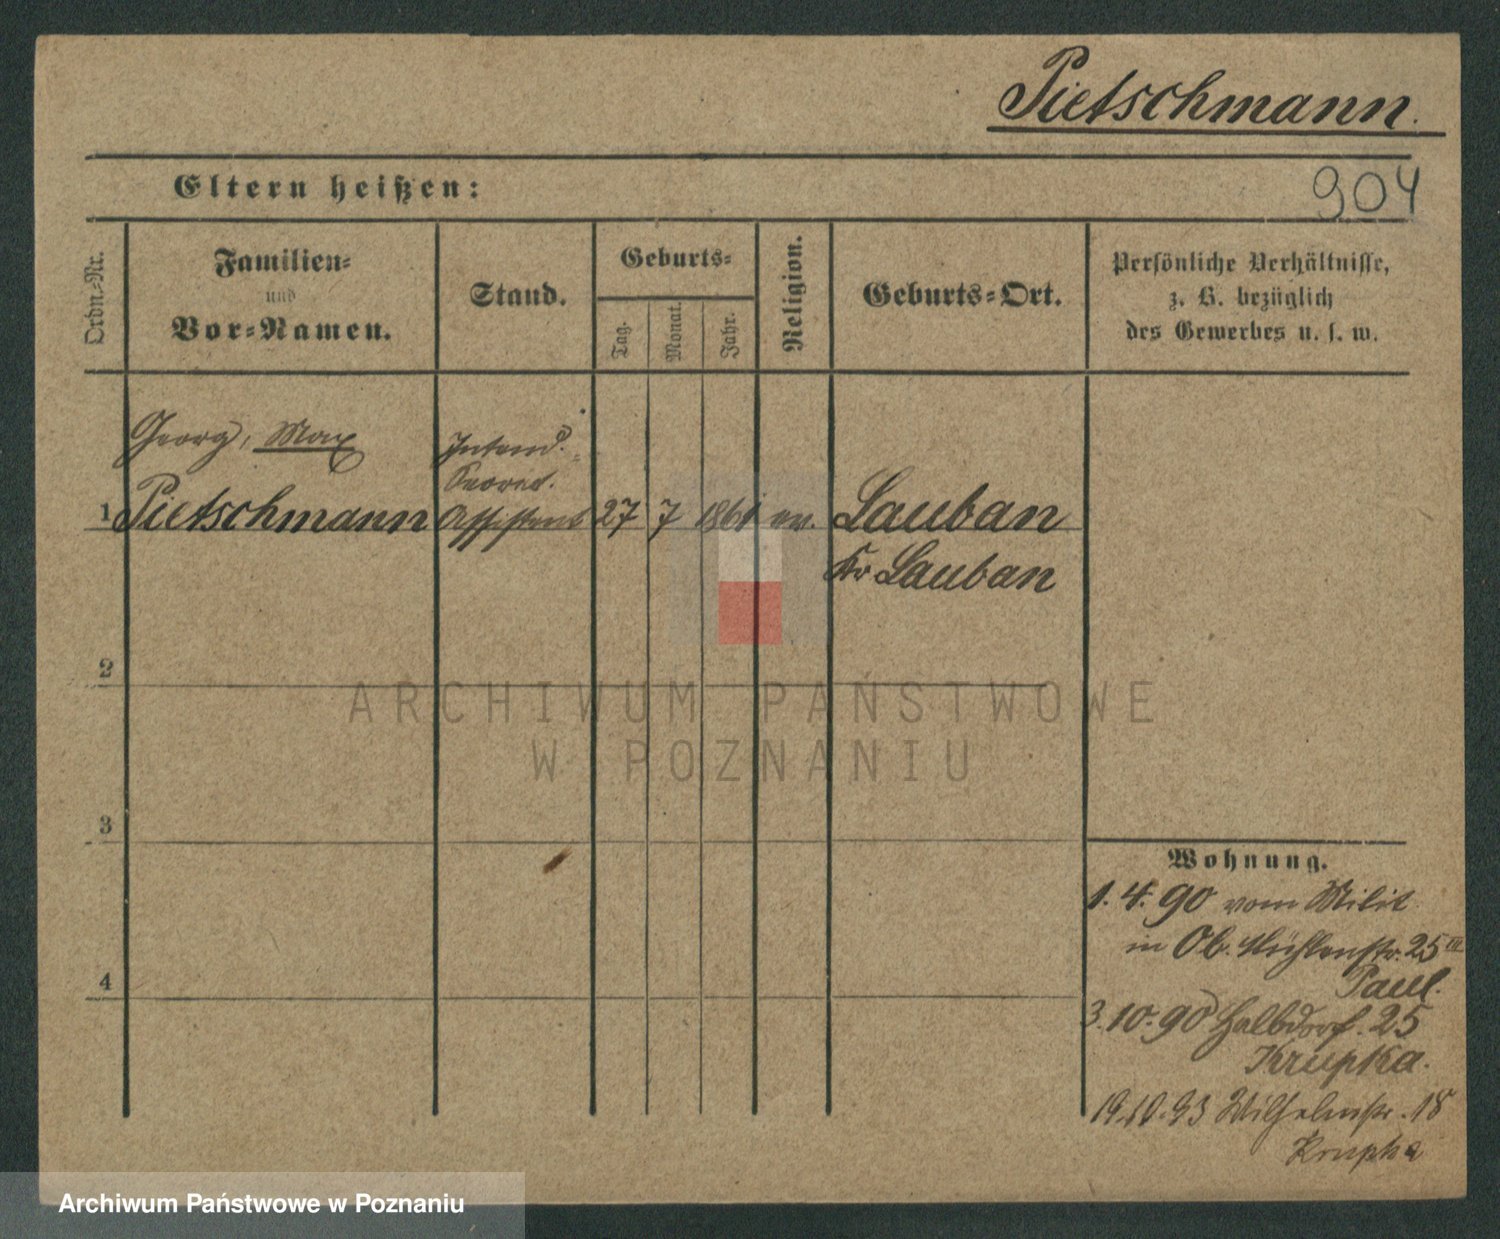 Pietschmann.
Eltern heißen:
904
Ordn.-Nr.
Familien-
und
Vor-Namen.
Stand.
Geburts-
Tag.
Monat.
Jahr.
Religion.
Geburts-Ort.
Persönliche Verhältnisse,
z. B. bezüglich
des Gewerbes u. s. w.
Georg, Max
Intend.
Assistent
1 Pietschmann 27 7 1861 ev. Lauban
Kr Lauban
2
3
4
Wohnung.
1. 4. 90 vom Milit
in Ob. Mühlenstr. 25 III
Paul.
3. 10. 90 Halbdorf. 25
Krupka.
19.10.93 Wilhelmstr. 18
Krupka
ARCHIWUM PAŃSTWOWE
W POZNANIU
Archiwum Państwowe w Poznaniu